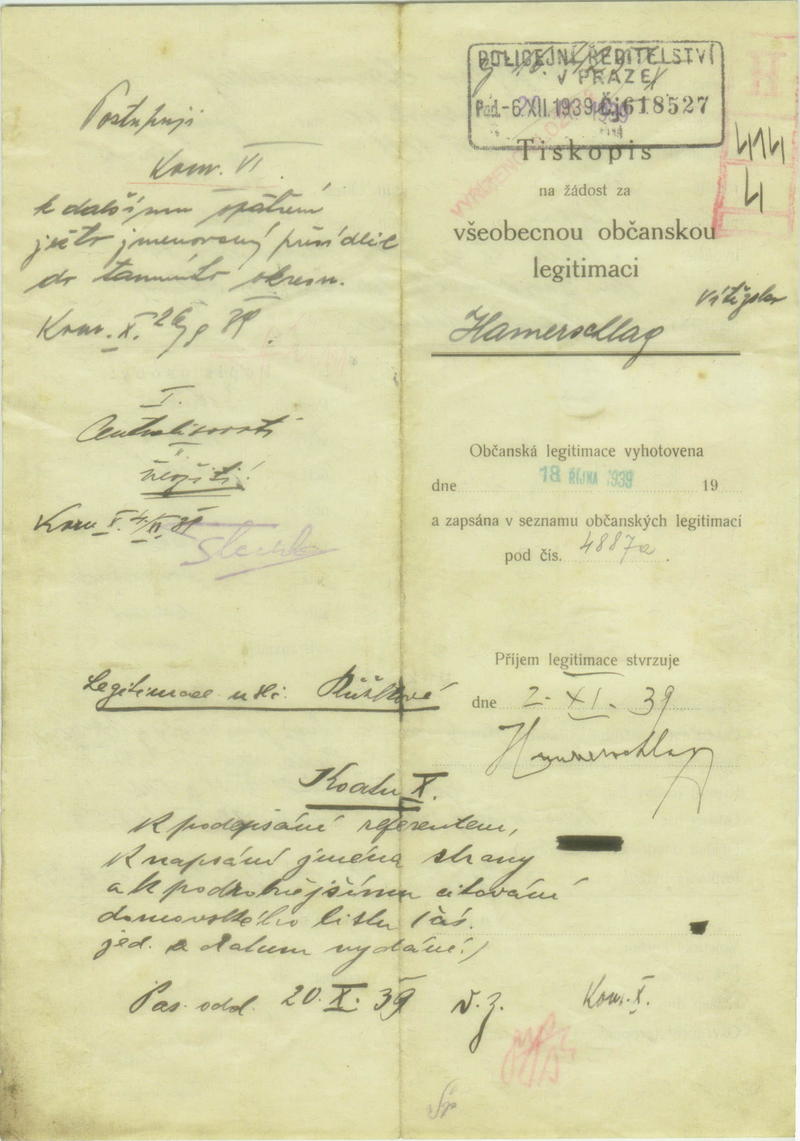 Postupuji
Kom. VI.
k dalšímu opatření
ješto jmenovaný přesídlil
do tamního okresu.
Kom. X. 26/9 39.
I.
Centralisovati
II.
Kom. X.
Legitimace u sl. Růžkové
POLICEJNÍ ŘEDITELSTVÍ
V PRAZE
Pod. -6 XII 1939 Čj 618527
414
4
Tiskopis
na žádost za
všeobecnou občanskou
legitimaci
Vítězslav
Hamerschlag
Občanská legitimace vyhotovena
dne 18 ŘÍJNA 1939 19
a zapsána v seznamu občanských legitimací
pod čís. 4887a.
Příjem legitimace stvrzuje
dne 2. XI. 39
Hamerschlag
X.
k podepsání referentem,
k napsání jména strany
a k podrobnějšímu citování
domovského listu /čás.
jed. a datum vydání./
Pas. odd. 20. X. 39 v. z. Kom. X.